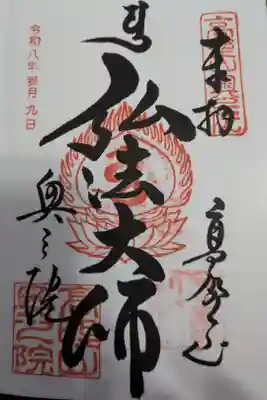 奉拝
高野山
弘法大師
奥之院
高野山
奥之院
令和八年 九日